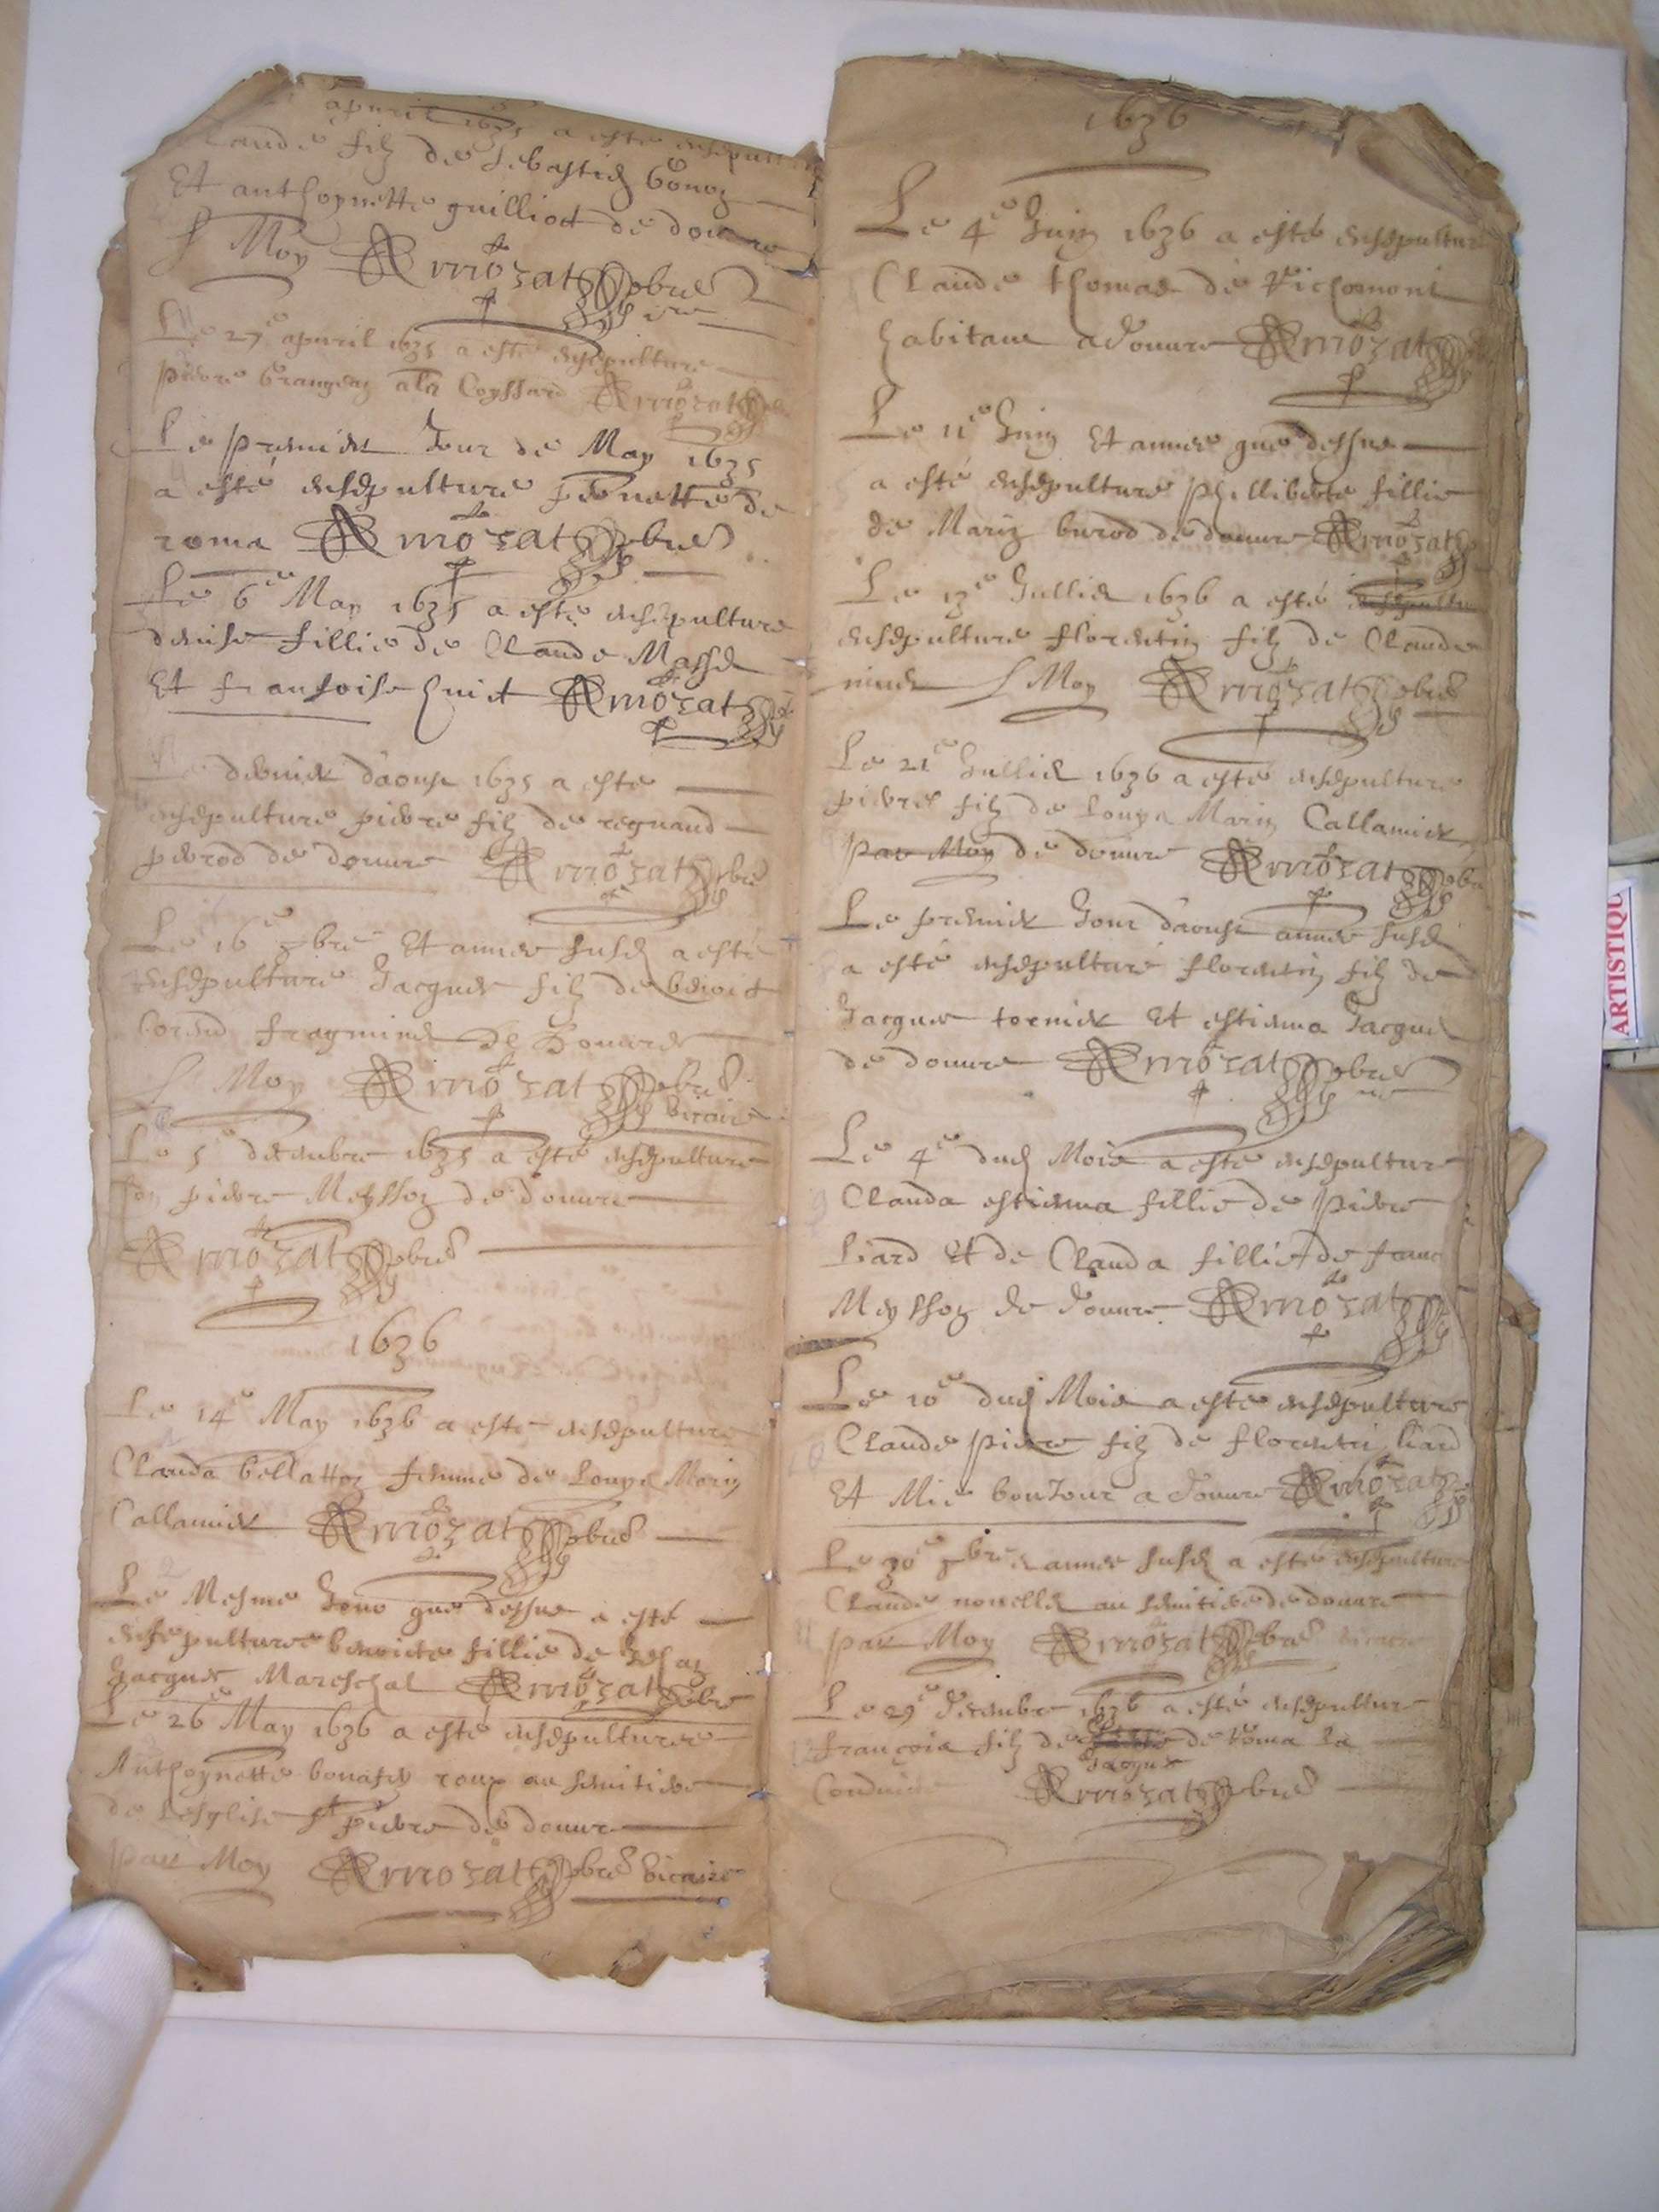 apuril 1635 a esté ensepult
Claude filz de Sebastien bonoz
Et anthoynette guilliod de douure
P Moy Armozat pbre
Le 27e apuril 1635 a esté ensepulture
pierre a la Coyssard Armozat
Le premier Jour de May 1635
a esté ensepulture pernette de
roma Armozat pbre
Le 6e May 1635 a esté ensepulture
denise fillie de Claude
Et fransoise huict Armozat
Le dernier daoust 1635 a esté
ensepulture pierre filz de regnaud
perrod de douure Armozat pbre
Le 16e bre Et annee susd a esté
ensepulture Jacques filz de benoict
de douure
P Moy Armozat pbre vicaire
Le 5e decembre 1635 a esté ensepulture
pierre Meyssoz de douure
Armozat pbre
1636
Le 14e May 1636 a esté ensepulture
Clauda bellattoz femme de Louys Marin
Callamier Armozat pbre
Le Mesme Jour que dessus a esté
ensepulture benoicte fillie de
Jacques Mareschal Armozat pbre
Le 26e May 1636 a esté ensepulturee
Anthoynette roux au semitiere
de Leglise St pierre de douure
par Moy Armozat pbre vicaire
1636
Le 4e Juin 1636 a esté ensepulture
Claude thomas de Richemont
habitant a douure Armozat
Le 11e Juin Et annee que dessus
a esté ensepulture philliberte fillie
de Marin burod de douure Armozat
Le 13e Jullien 1636 a esté ensepultu
ensepulture florentin filz de Claude
P Moy Armozat pbre
Le 21e Jullien 1636 a esté ensepulture
pierre filz de Louys Marin Callamier
par Moy de douure Armozat pbre
Le premier Jour daoust annee susd
a esté ensepulturé florentin filz de
Jacques tornier Et estienna Jacque
de douure Armozat pbre
Le 4e dud Mois a esté ensepulture
Clauda estienna fillie de pierre
Liard Et de Clauda fillie de franc
Meyssoz de douure Armozat
Le 10e dud Mois a esté ensepulture
Claude pierre filz de florentin liard
Et Mie bonJour a douure Armozat
Le 30e bre annee susd a esté ensepulture
Claude nouelle au semitiere de douure
par Moy Armozat pbre vicaire
Le 29e decembre 1636 a esté ensepulture
françois filz de Jacques de roma La
Conduicte Armozat pbre
ARTISTIQU